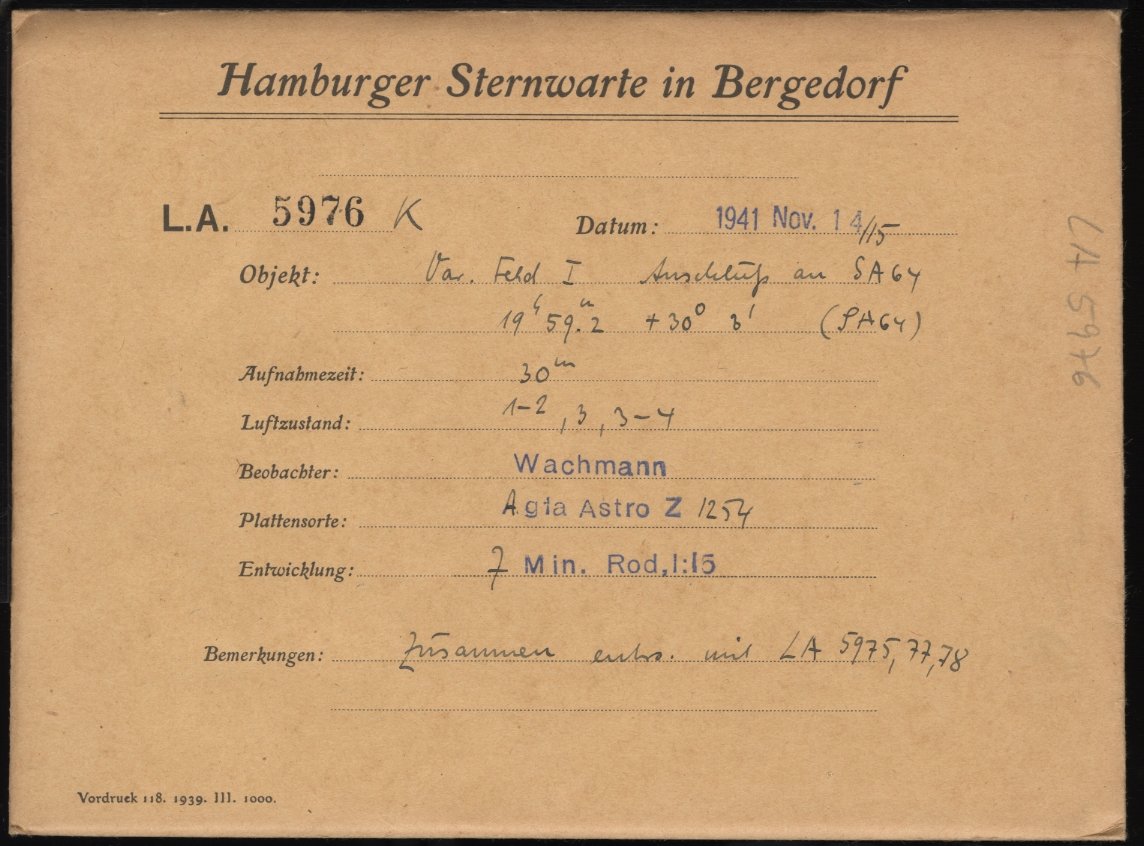 Hamburger Sternwarte in Bergedorf
L.A. 5976 K
Datum: 1941 Nov. 14/15
Objekt: Var. Feld I Anschluß an SA64
19ʰ 59.ᵐ2 +30° 3' (SA64)
Aufnahmezeit: 30ᵐ
Luftzustand: 1-2, 3, 3-4
Beobachter: Wachmann
Plattensorte: Agfa Astro Z 1254
Entwicklung: 7 Min. Rod, 1:15
Bemerkungen: Zusammen entw. mit LA 5975, 77, 78
Vordruck 118. 1939. III. 1000.
LA 5976